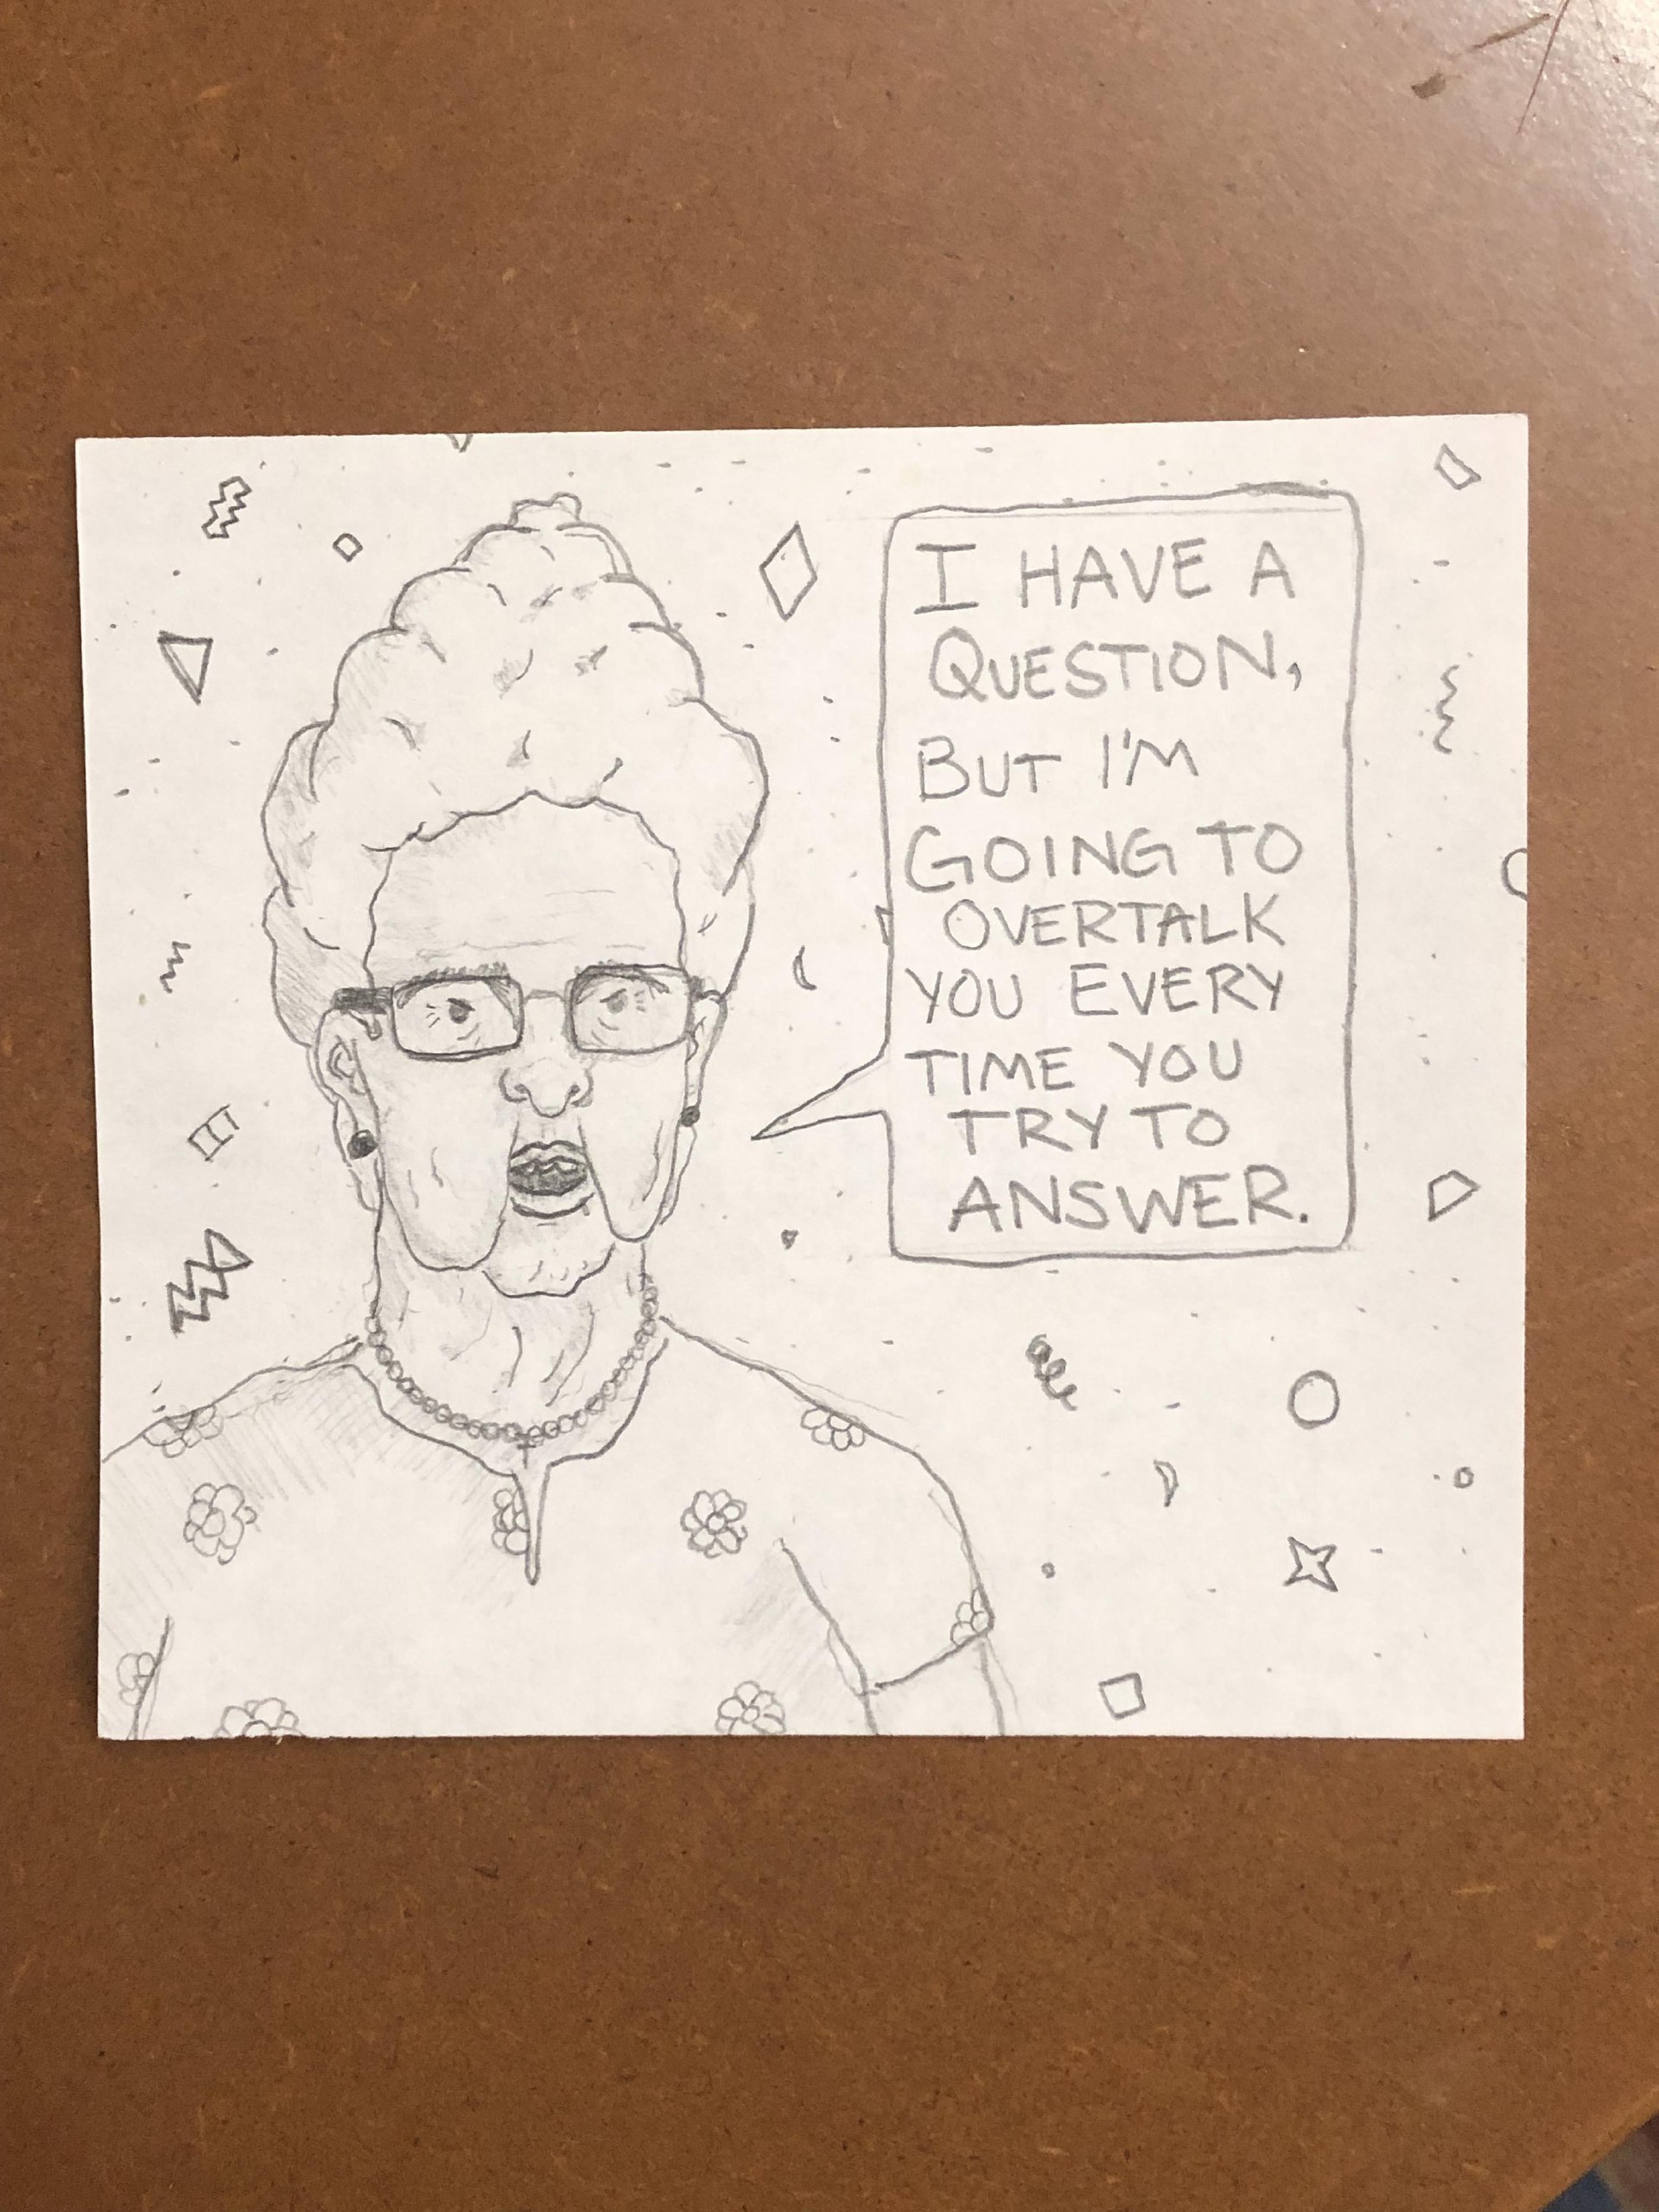 I HAVE A
QUESTION,
BUT I'M
GOING TO
OVERTALK
YOU EVERY
TIME YOU
TRY TO
ANSWER.